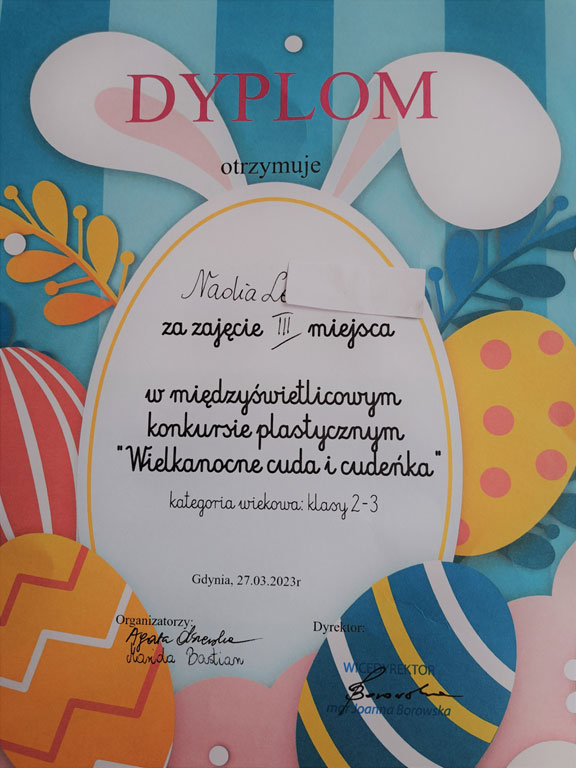 DYPLOM
otrzymuje
Nadia Le
za zajęcie III miejsca
w międzyświetlicowym
konkursie plastycznym
"Wielkanocne cuda i cudeńka"
kategoria wiekowa: klasy 2-3
Gdynia, 27.03.2023r
Organizatorzy:
Agata
Wanda Bastian
Dyrektor:
WICEDYREKTOR
Borowska
mgr Joanna Borowska